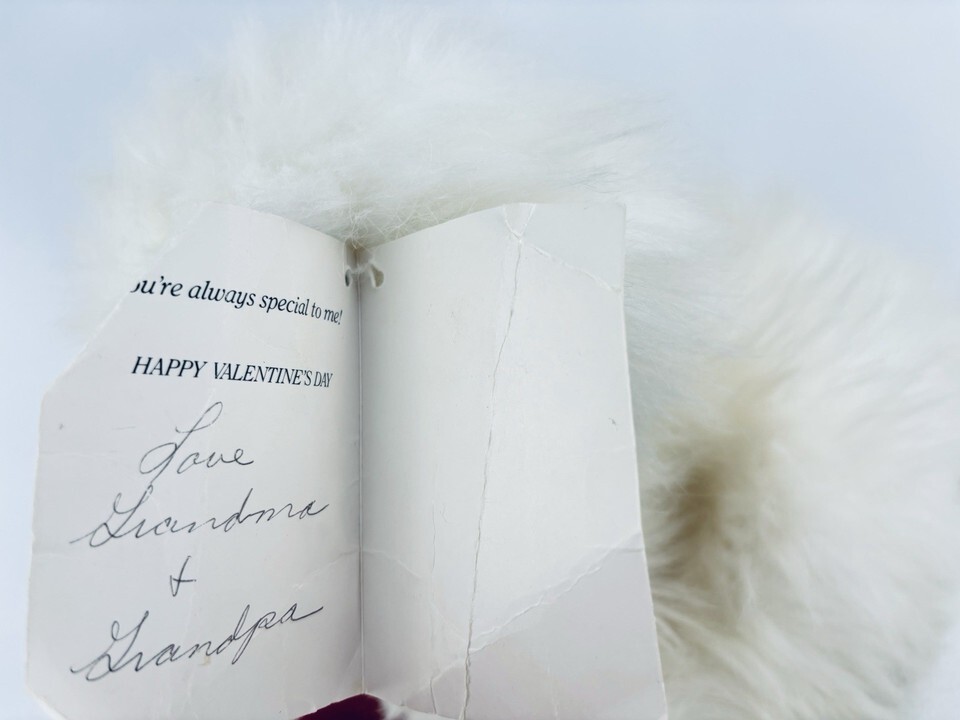 ou're always special to me!
HAPPY VALENTINE'S DAY
Love
Grandma
&
Grandpa